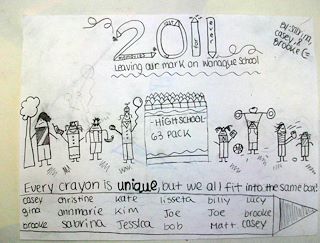 2011
memories
Leaving our mark on Wanaque School
By: Sabrina,
casey, &
Brooke G.
-HIGHSCHOOL
63 PACK
Every crayon is unique, but we all fit into the same box!
casey christine kate lisseta billy lucy
gina annmarie kim Joe Joe brooke
brooke sabrina Jessica bob Matt casey